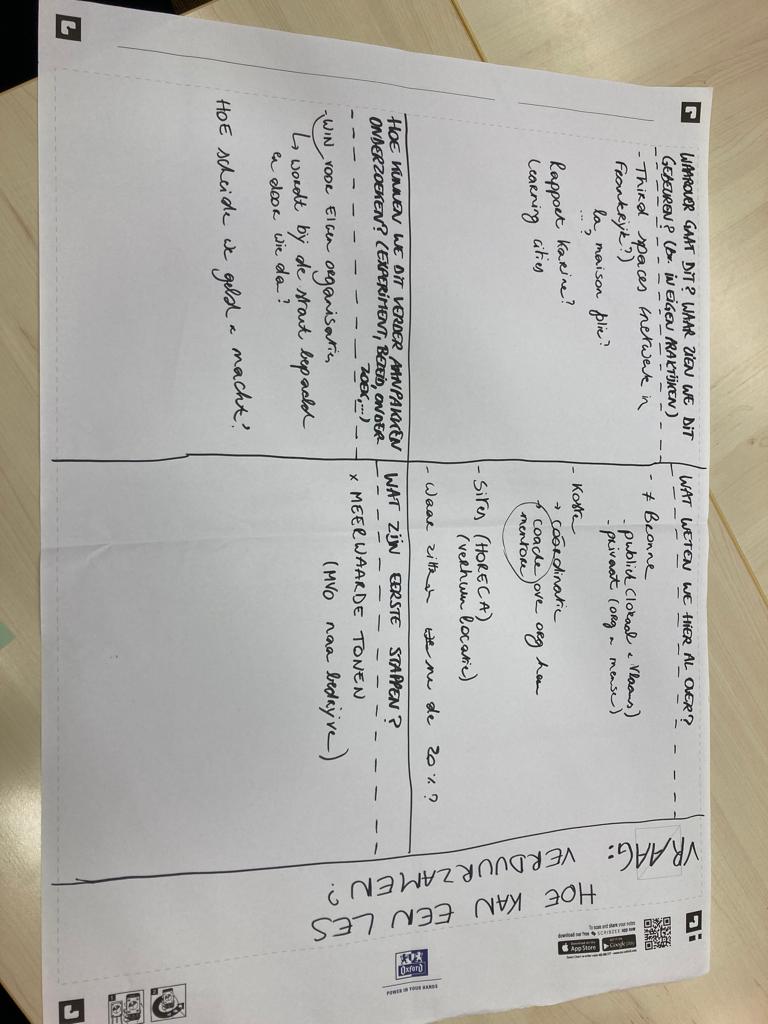 VRAAG: HOE KAN EEN LES
VERDUURZAMEN?
WAAROVER GAAT DIT? WAAR ZIEN WE DIT
GEBEUREN? (Bv. IN EIGEN PRAKTIJKEN)
- Third spaces (netwerk in
Frankrijk?)
La maison plie?
...?
Rapport Karine?
Learning cities
WAT WETEN WE HIER AL OVER?
- ≠ Bronne
- publiek (lokaal e Vlaams)
- privaat (org e mense)
- Koste
→ coördinatie
→ coache ove org hee
mentore
- Sites (HORECA)
(verhuur locatie)
- Waar zitte we me de 20%?
HOE KUNNEN WE DIT VERDER AANPAKKEN
ONDERZOEKEN? (EXPERIMENT, BELEID, ONDER
ZOEK,...)
- WIN voor Eigen organisatie,
↳ wordt bij de start bepaald
en door wie da?
HOE scheide we geld e macht?
WAT ZIJN EERSTE STAPPEN?
x MEERWAARDE TONEN
(MVO naar bedrijve)
To scan and share your notes
download our free SCRIBZEE APP now
App Store
Google Play
Oxford
POWER IN YOUR HANDS